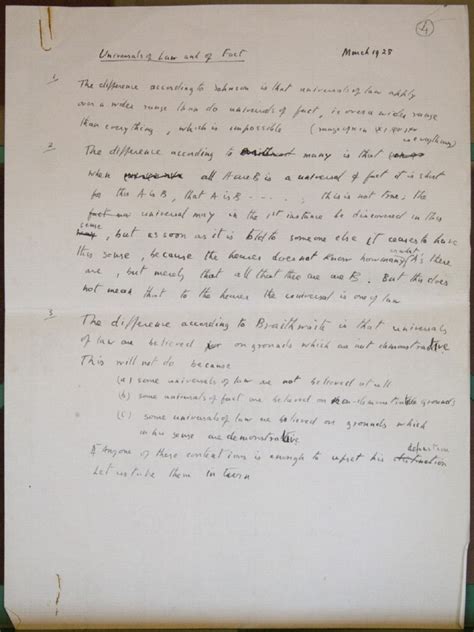 4
Universals of Law and of Fact March 1928
1. The difference according to Johnson is that universals of law apply
over a wider range than do universals of fact, is over a wider range
than everything, which is impossible (range
everything)
2. The difference according to many is that
when all A are B is a universal of fact it is short
for this A is B, that A is B . . . . . , this is not true, the
fact universal may in the 1st instance be discovered in this
sense, but as soon as it is told to someone else it ceases to have
this sense, because the hearer does not know how many A's there
are, but merely that all that there are are B. But this does
not mean that to the hearer the universal is one of law
3. The difference according to Braithwaite is that universals
of law are believed on grounds which are not demonstrative
This will not do because
(a) some universals of law are not believed at all
(b) some universals of fact are believed on non-demonstrative grounds
(c) some universals of law are believed on grounds which
in his sense are demonstrative
Anyone of these contentions is enough to upset his definition
Let us take them in turn